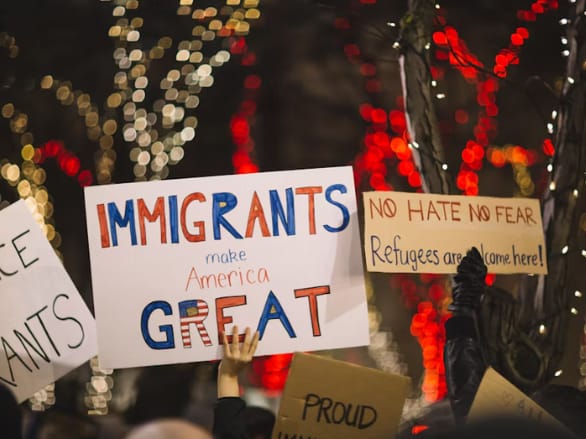 CE
ANTS
IMMIGRANTS
make
America
GREAT
NO HATE NO FEAR
Refugees are lcome here!
PROUD